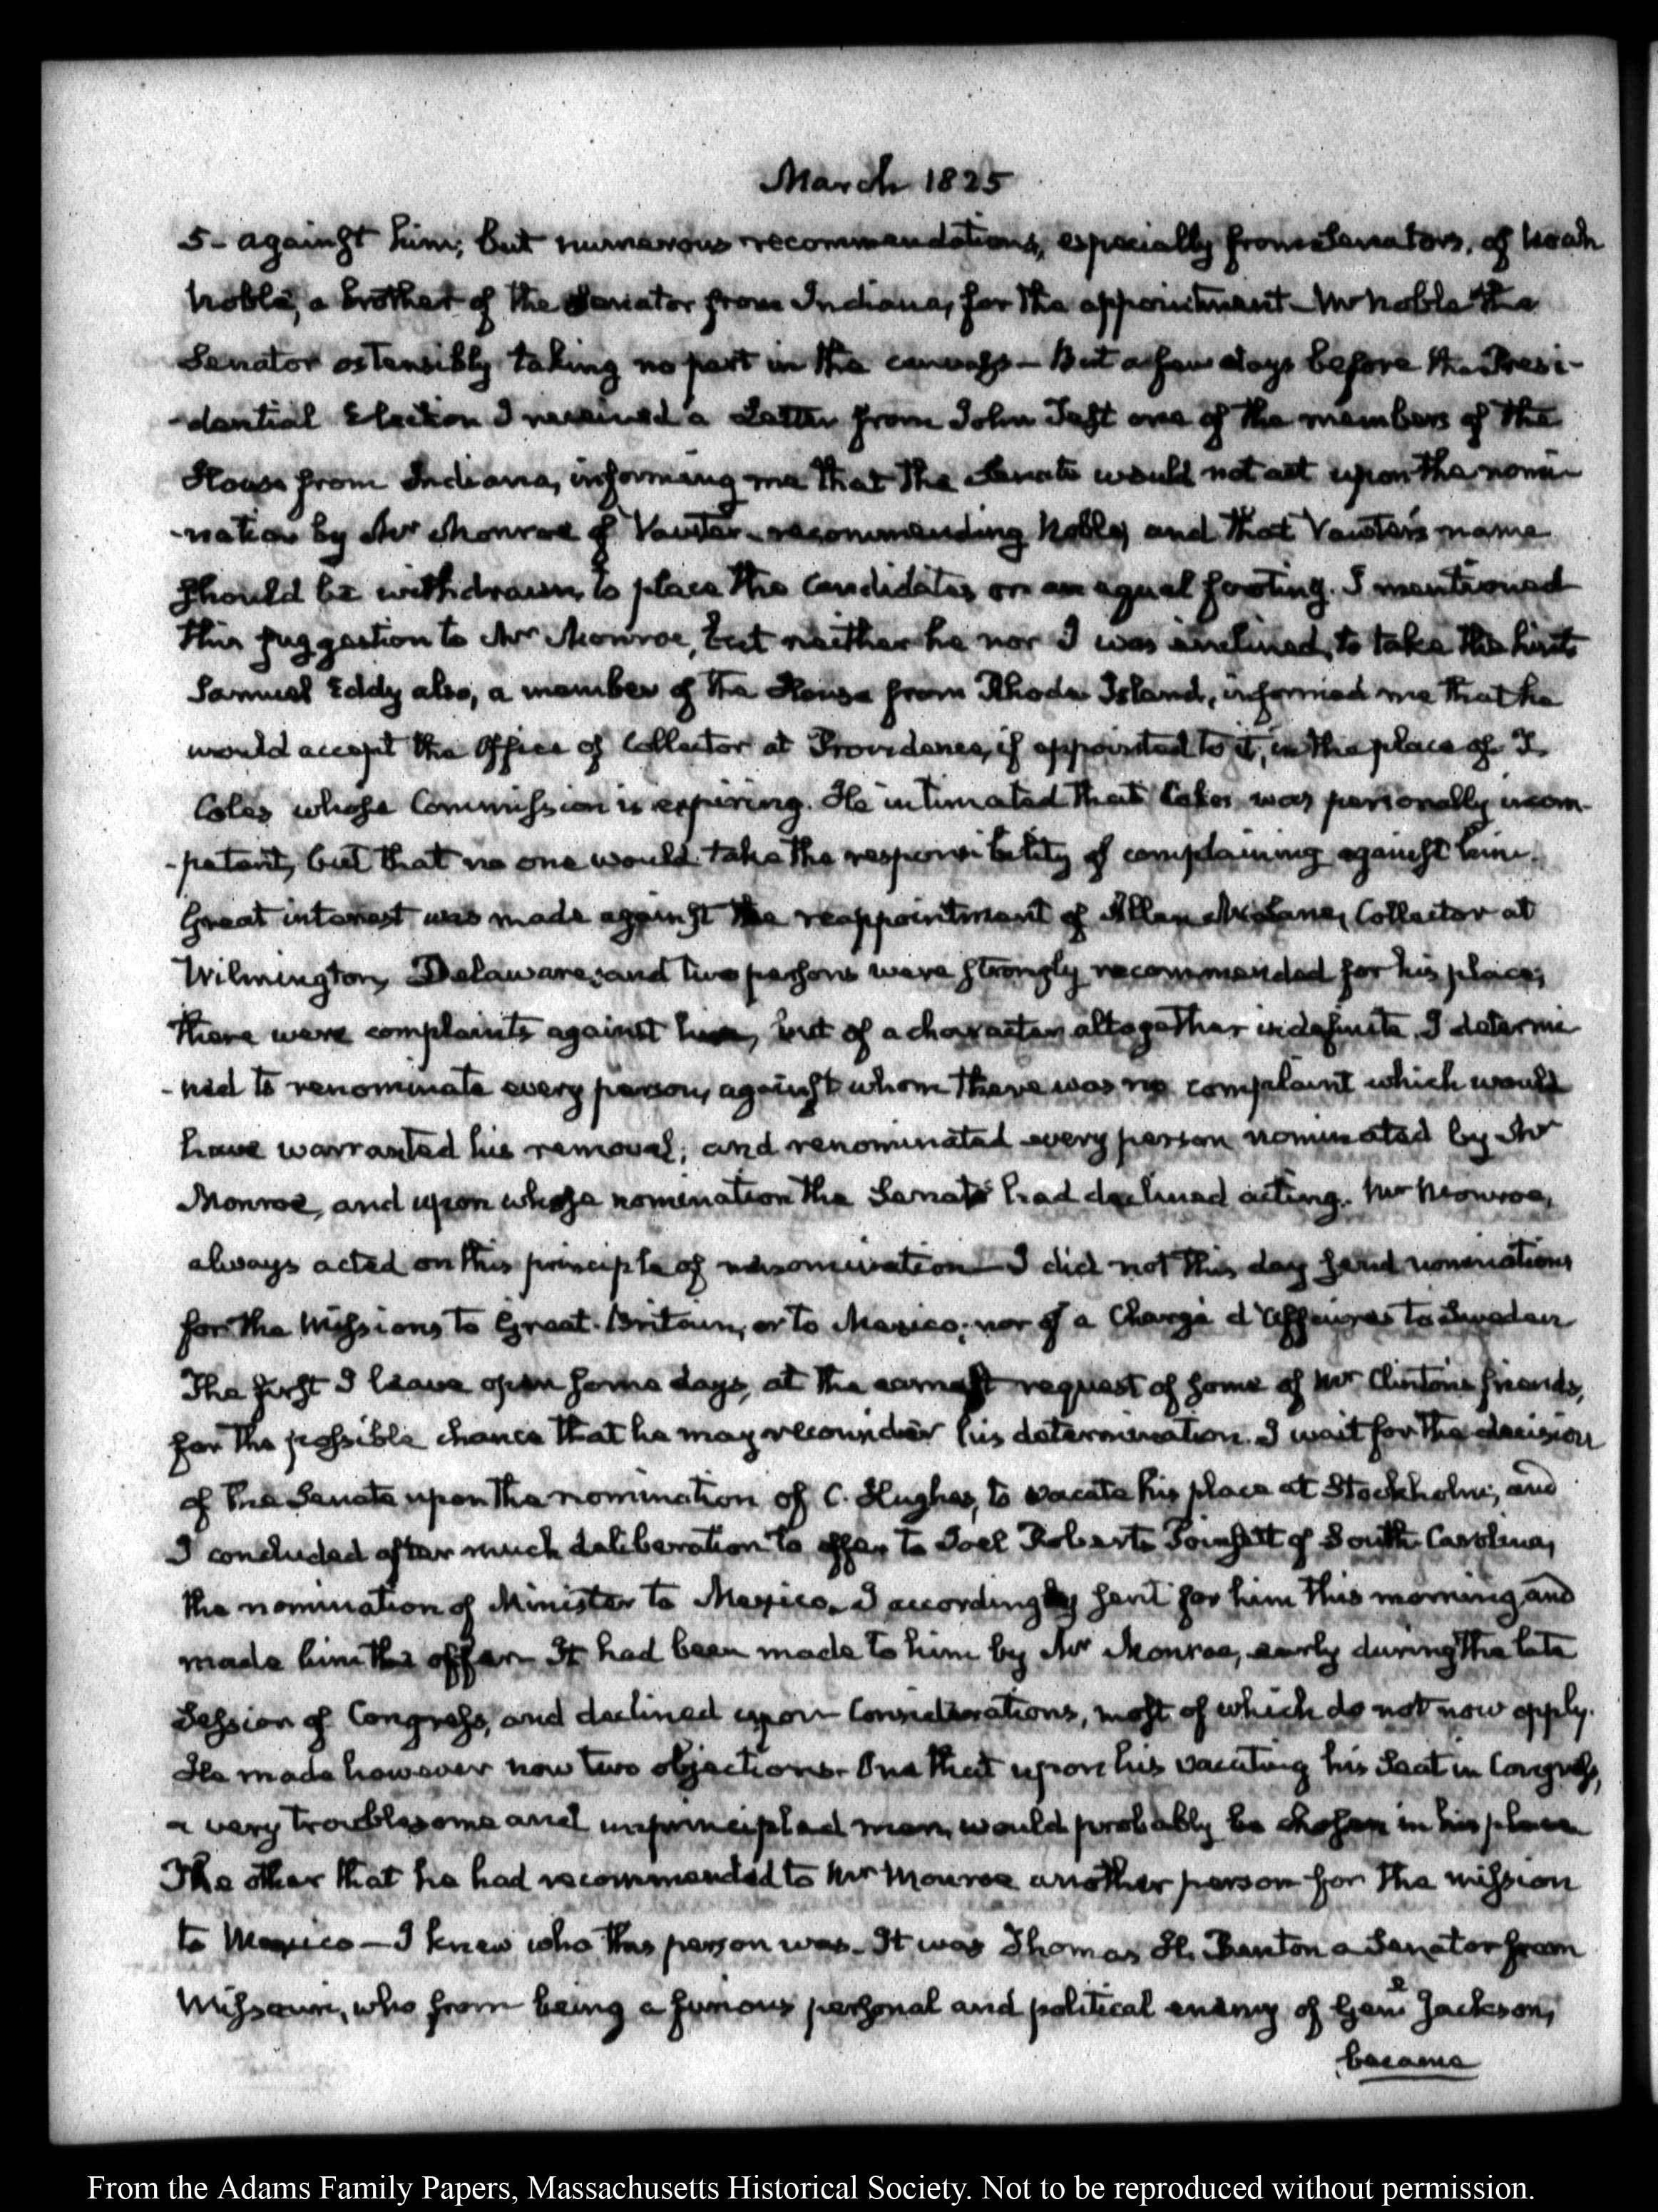 March 1825
5- against him; but numerous recommendations, especially from Senators, of Noah
Noble, a brother of the Senator from Indiana, for the appointment - Mr Noble the
Senator ostensibly taking no part in the canvass - But a few days before the Presi-
-dential Election I received a Letter from John Test one of the members of the
House from Indiana, informing me that the Senate would not act upon the nomi-
-nation by Mr Monroe of Vawter - recommending Noble, and that Vawter's name
should be withdrawn, to place the Candidates on an equal footing. I mentioned
this suggestion to Mr Monroe, but neither he nor I was inclined, to take the hint.
Samuel Eddy also, a member of the House from Rhode Island, informed me that he
would accept the Office of Collector at Providence, if appointed to it, in the place of T.
Coles whose Commission is expiring. He intimated that Coles was personally incom-
-petent, but that no one would take the responsibility of complaining against him.
Great interest was made against the reappointment of Allan McLane, Collector at
Wilmington, Delaware; and two persons were strongly recommended for his place;
there were complaints against him, but of a character altogether indefinite. I determi
-ned to renominate every person, against whom there was no complaint which would
have warranted his removal; and renominated every person nominated by Mr
Monroe, and upon whose nomination the Senate had declined acting. Mr Monroe,
always acted on this principle of renomination - I did not this day send nominations
for the Missions to Great-Britain, or to Mexico; nor of a Chargé d'Affaires to Sweden
The first I leave open some days, at the earnest request of some of Mr Clinton's friends,
for the possible chance that he may reconsider his determination. I wait for the decision
of the Senate upon the nomination of C. Hughes, to vacate his place at Stockholm; and
I concluded after much deliberation to offer to Joel Roberts Poinsett of South Carolina,
the nomination of Minister to Mexico. I accordingly sent for him this morning and
made him the offer - It had been made to him by Mr Monroe, early during the late
Session of Congress, and declined upon Considerations, most of which do not now apply.
He made however now two objections. One that upon his vacating his Seat in Congress,
a very troublesome and unprincipled man, would probably be chosen in his place
The other that he had recommended to Mr Monroe another person for the mission
to Mexico - I knew who this person was. It was Thomas H. Benton a Senator from
Missouri, who from being a furious personal and political enemy of Genl Jackson,
became
From the Adams Family Papers, Massachusetts Historical Society. Not to be reproduced without permission.